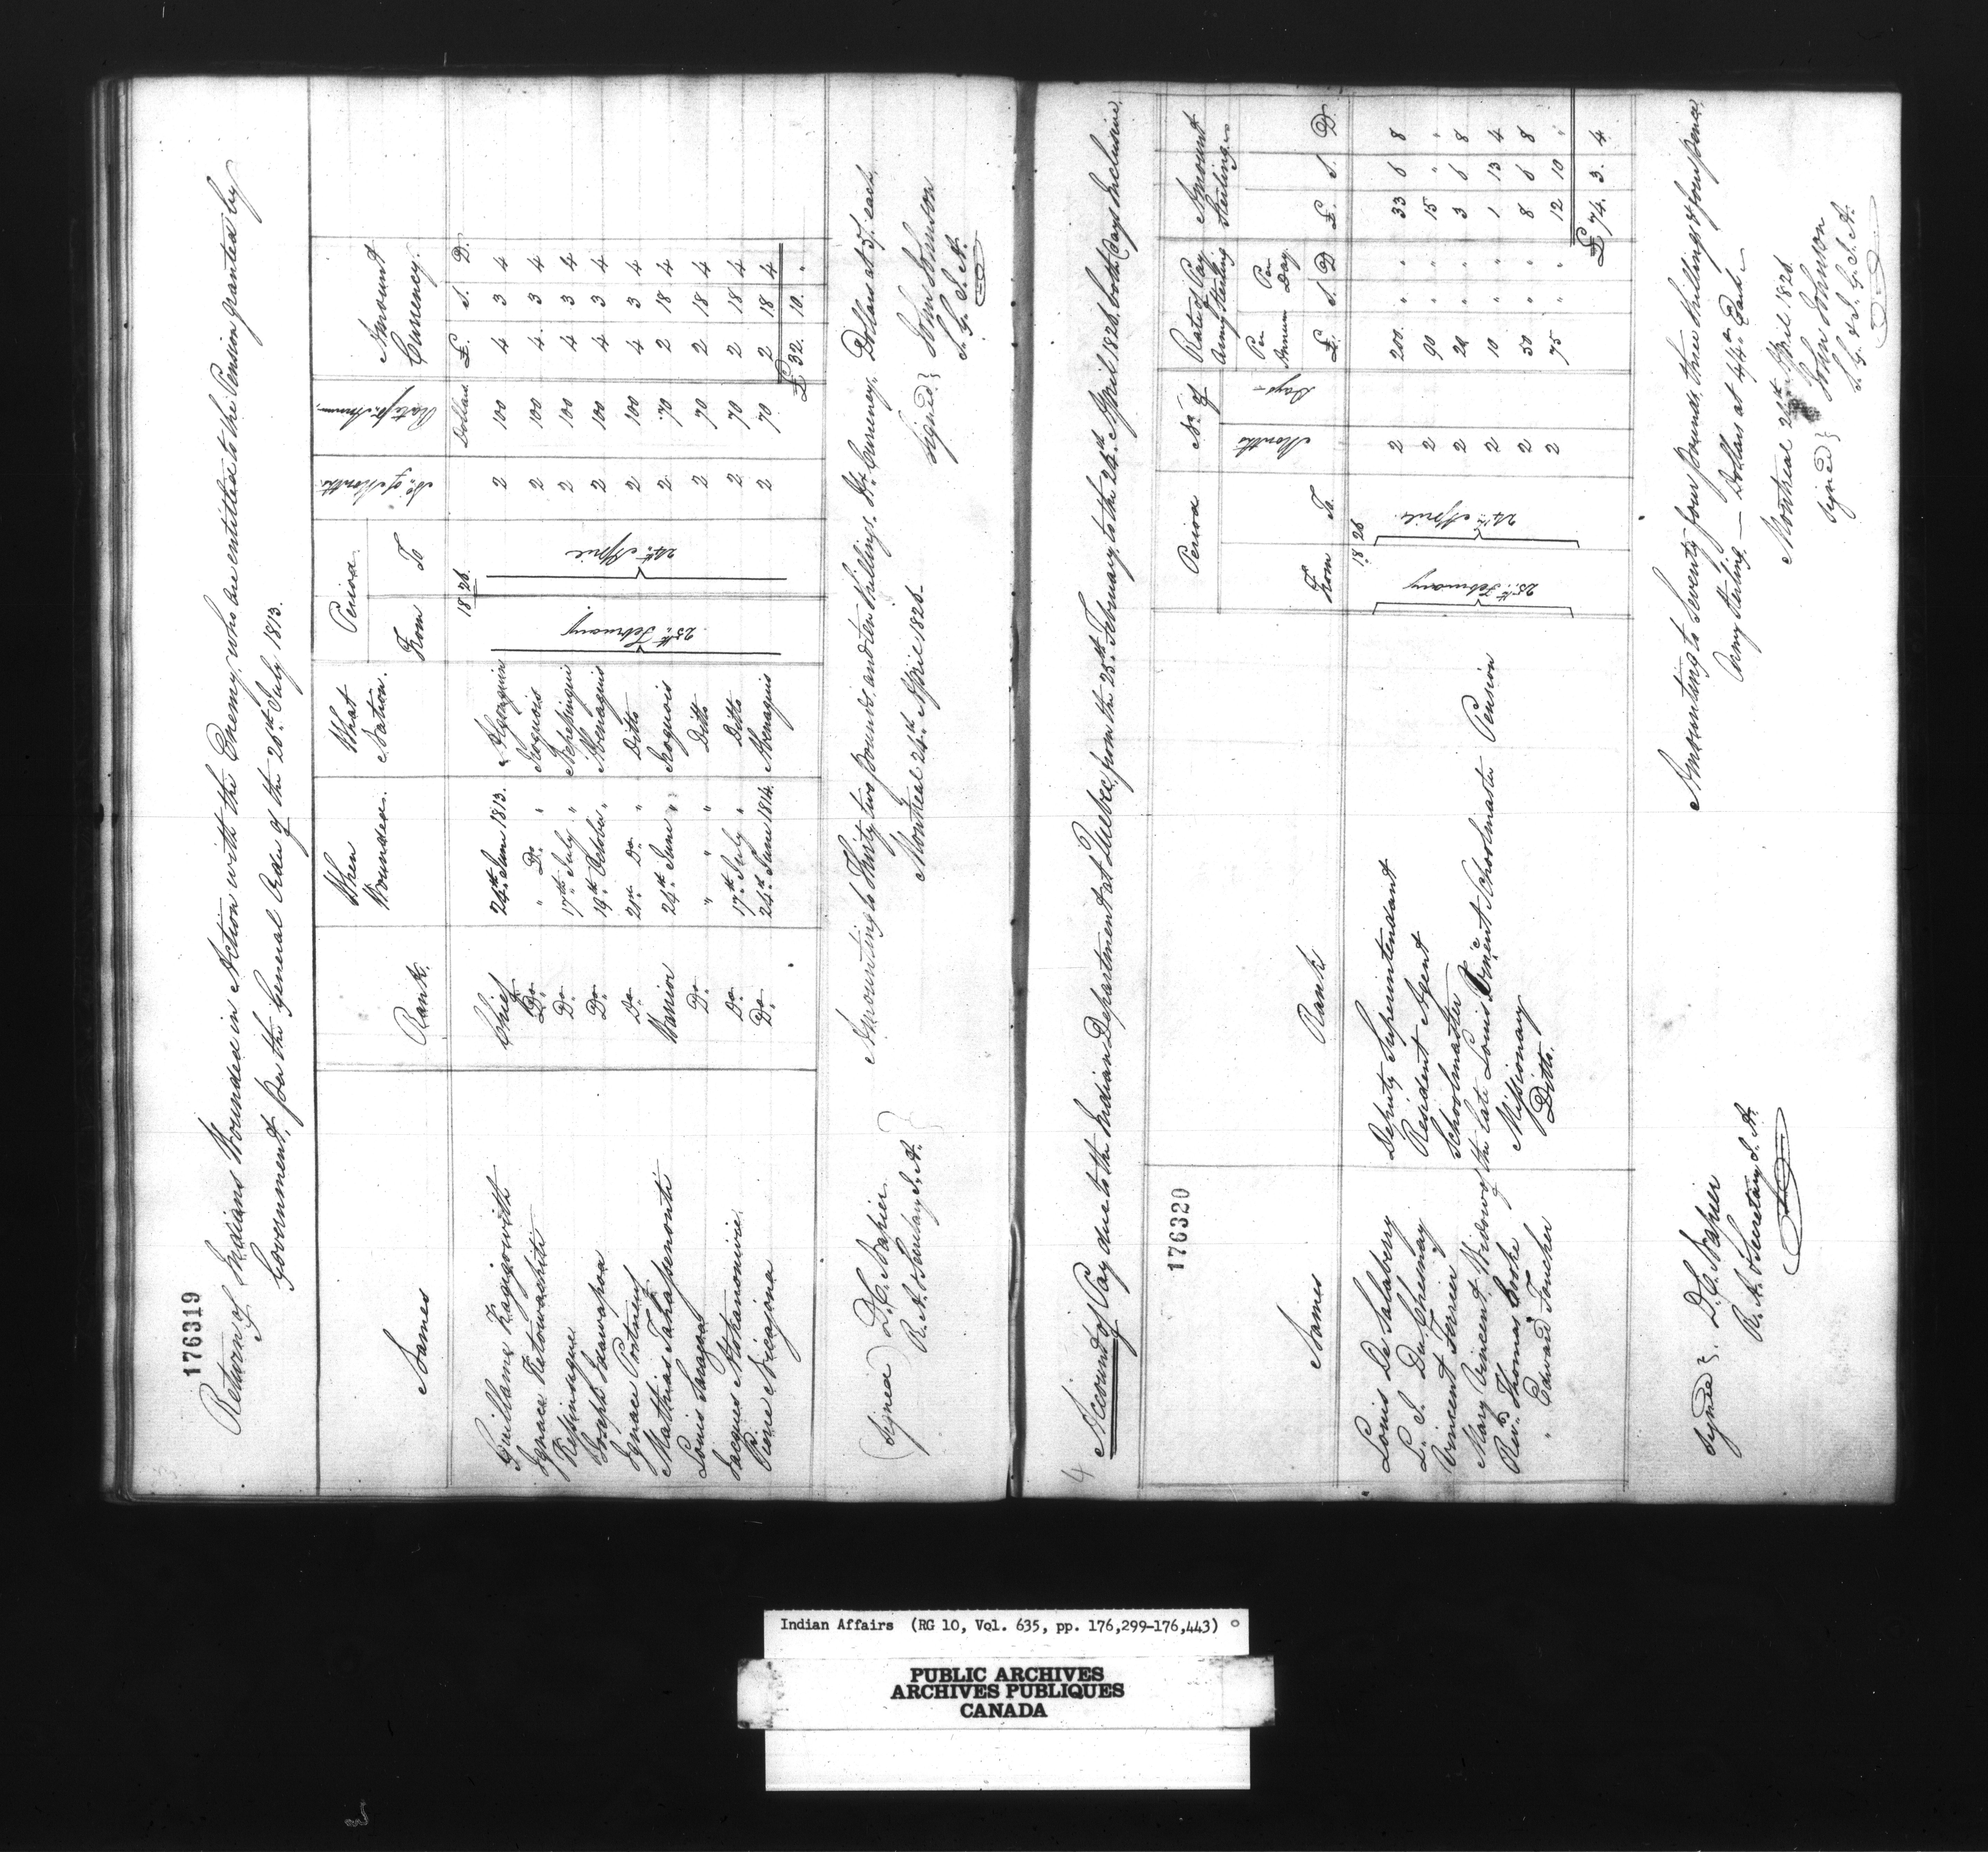 176319
Return of Indians Wounded in Action with the Enemy, who are entitled to the Pension granted by
Government, per the General Order of the 26th July 1813.
Names Rank. When Wounded. What Nation. Period From To No. of Months Rate per Annum Amount Currency.
1826 Dollars £ S. D.
Guillaume Chief 24th June 1813. Algonquin 2 100 4 3 4
Ignace Do. " Do. " Iroquois 2 100 4 3 4
Do. 17th July " 2 100 4 3 4
Joseph Do. 19th October " Abenaquis 2 100 4 3 4
Ignace Portneuf Do. 21st Do. " Ditto 2 100 4 3 4
Mathias Warrior 24th June " Iroquois 2 70 2 18 4
Louis Do. " " Ditto 2 70 2 18 4
Jacques Do. 17th July " Ditto 2 70 2 18 4
Pierre Do. 24th June 1814. Abenaquis 2 70 2 18 4
25th February 24th April
£ 32. 10. "
Amounting to Thirty two Pounds, and ten Shillings, Hx. Currency, Dollars at 5/. each,
Montreal 24th April 1826.
(Signed) D. C. Napier
R. A. & Secretary I. A.
Signed} John Johnson
S. G. I. A.
4
Account of Pay due to the Indian Department at Quebec, from the 25th February, to the 24th April 1826, both days Inclusive.
176320
Names Rank Period From To No. of Months Days Rate of Pay Army Sterling Per Annum Per Day Amount Sterling
1826 £ S D £. S. D.
Louis De Salaberry Deputy Superintendant 2 200. " " 33 6 8
L. J. Du Chesnay Resident Agent 2 90 " " 15 " "
Vincent Ferrier Schoolmaster 2 20 " " 3 6 8
Mary Vincent, Widow of the late Louis Vincent Schoolmaster Pension 2 10 " " 1 13 4
Revd. Thomas Cooke Missionary 2 50 " " 8 6 8
" Edward Foucher Ditto. 2 75 " " 12 10 "
25th February 24th April
£ 74. 3. 4
Amounting to Seventy four Pounds, three Shillings & four Pence,
Army Sterling — Dollars at 4/4d Each —
Montreal 24th April 1826.
Signed}. D. C. Napier
R. A. & Secretary I. A.
Signed} John Johnson
S. G. & I. G. I. A.
Indian Affairs (RG 10, Vol. 635, pp. 176,299-176,443)
PUBLIC ARCHIVES
ARCHIVES PUBLIQUES
CANADA